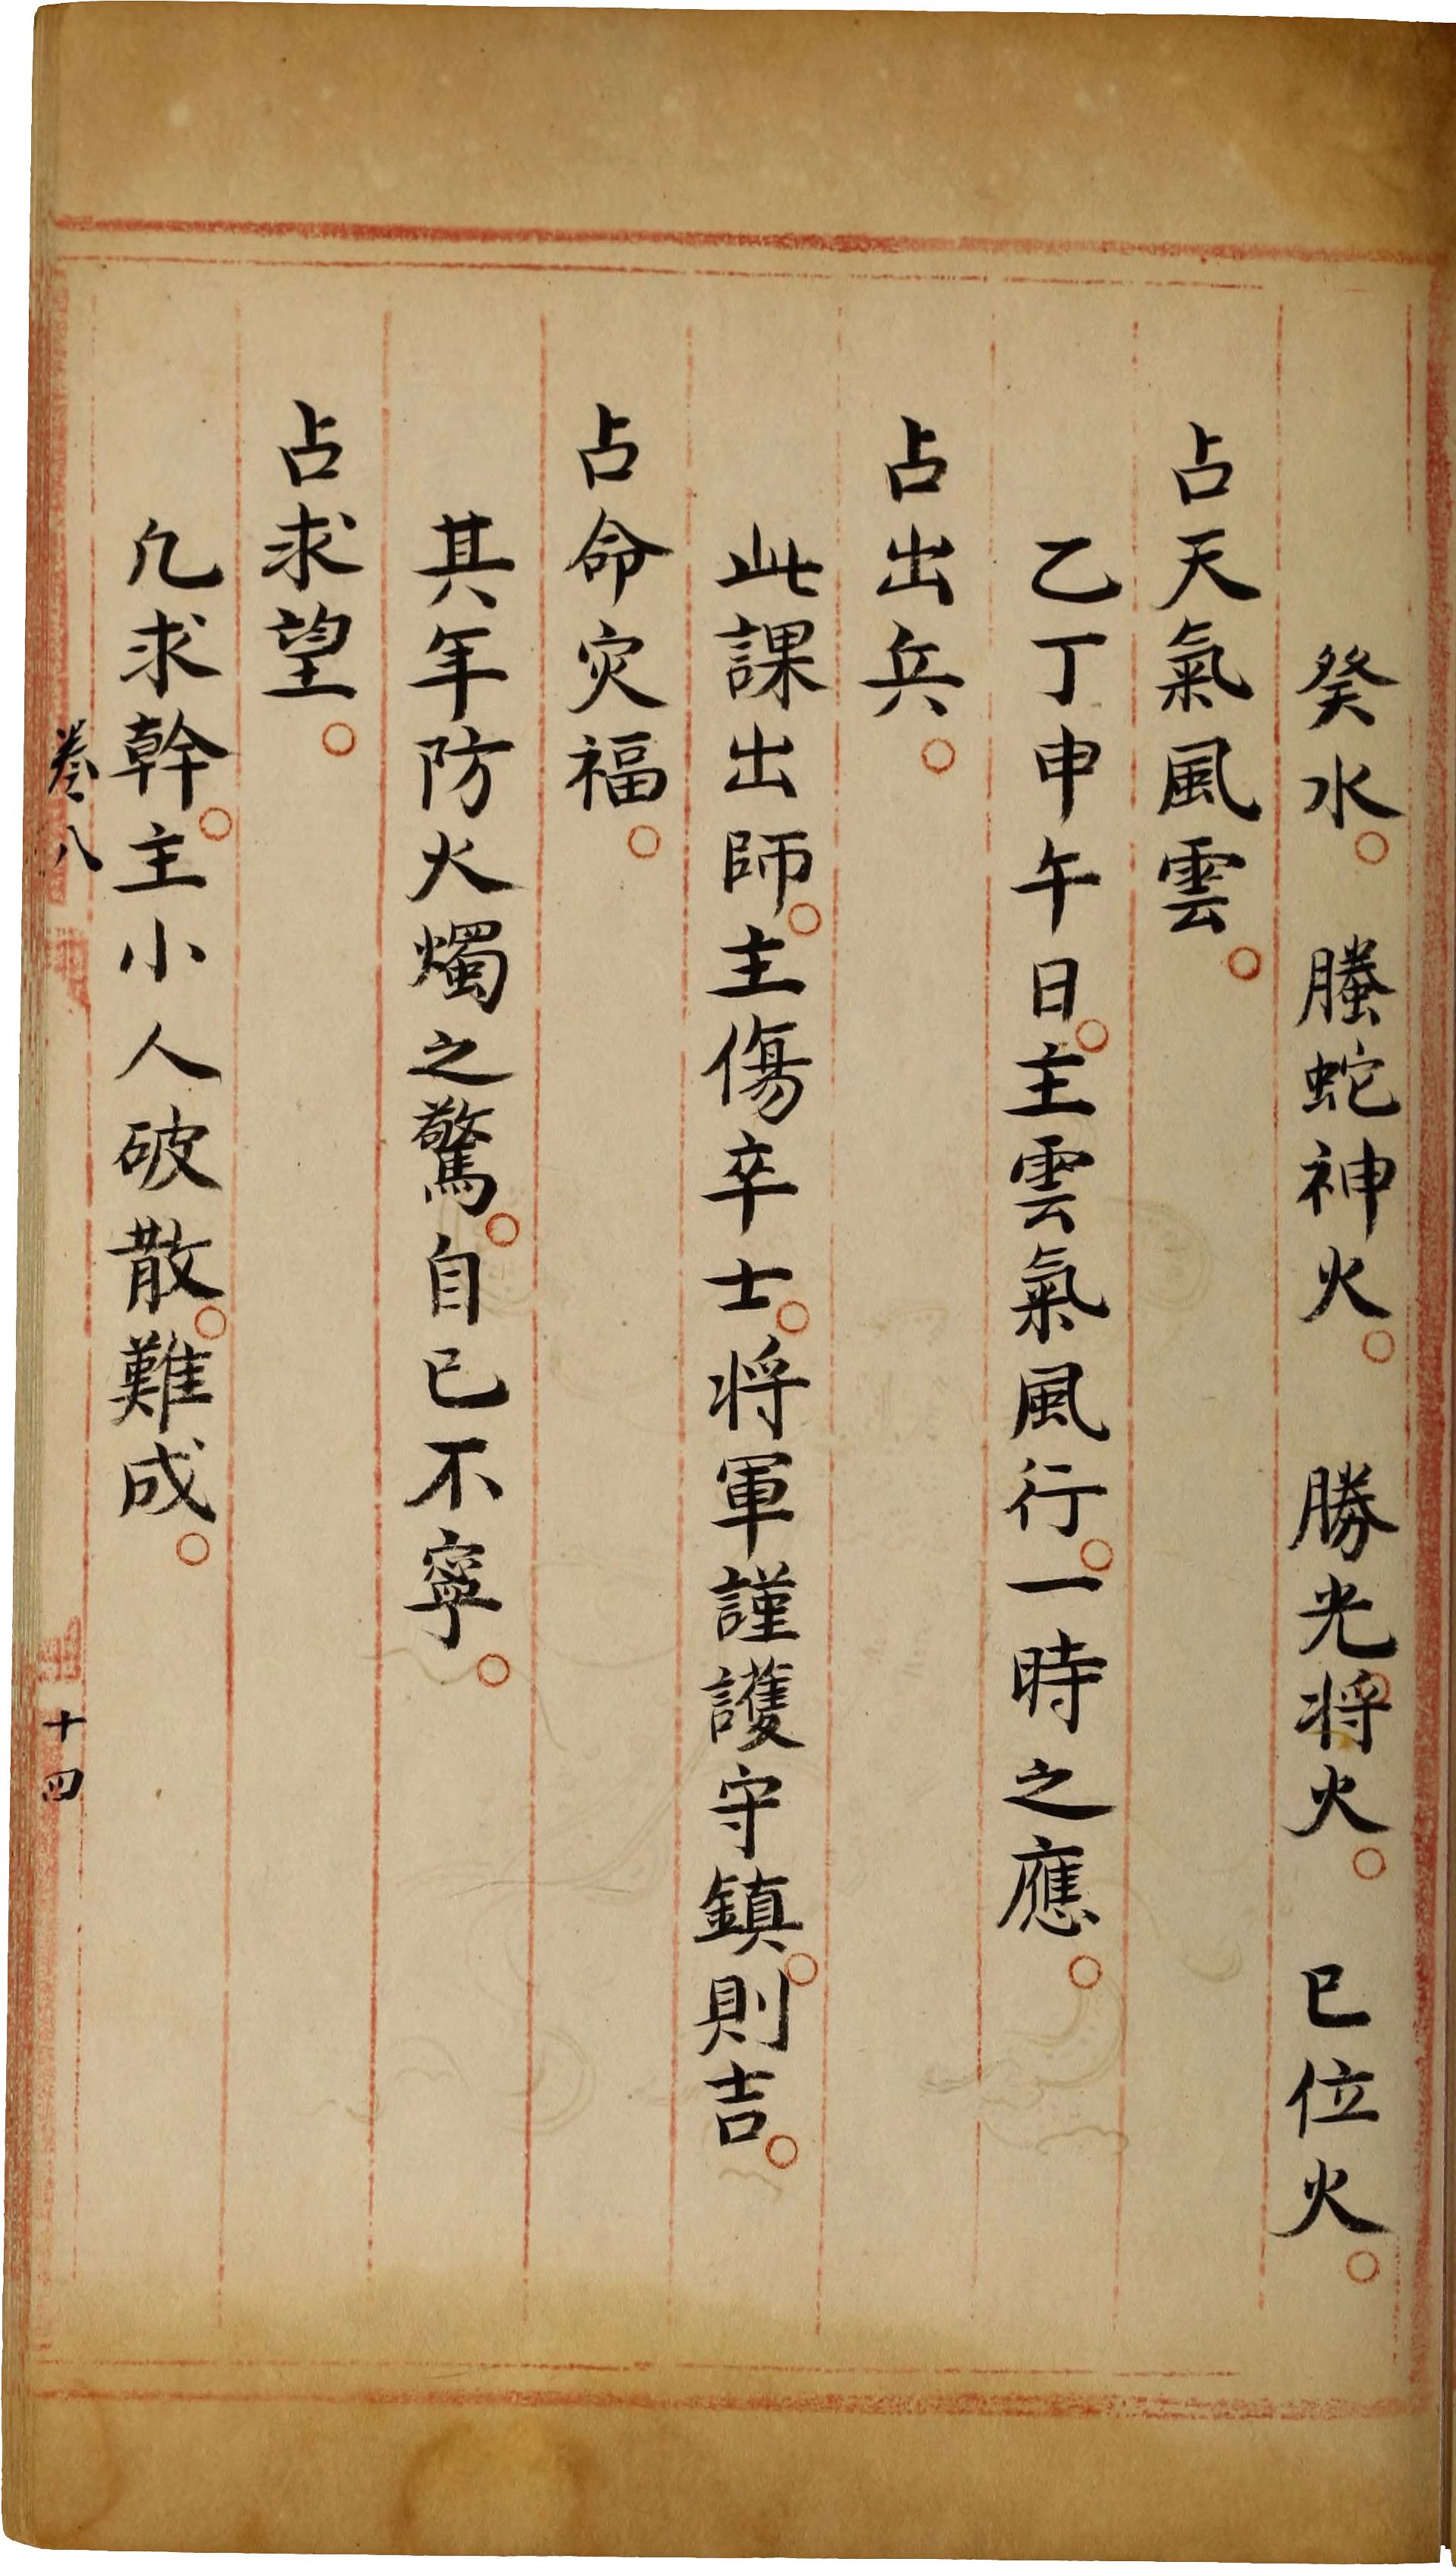 癸水。　螣蛇神火。　勝光。将火。　巳位火。
占天氣風雲。
乙丁申午日。主雲氣風行。一時之應。
占出兵。
此課出師。主傷卒士。将軍謹護守鎮。則吉。
占命灾福。
其年防火燭之驚。自已不寧。
占求望。
凢求幹。主小人破散。難成。
卷八
十四